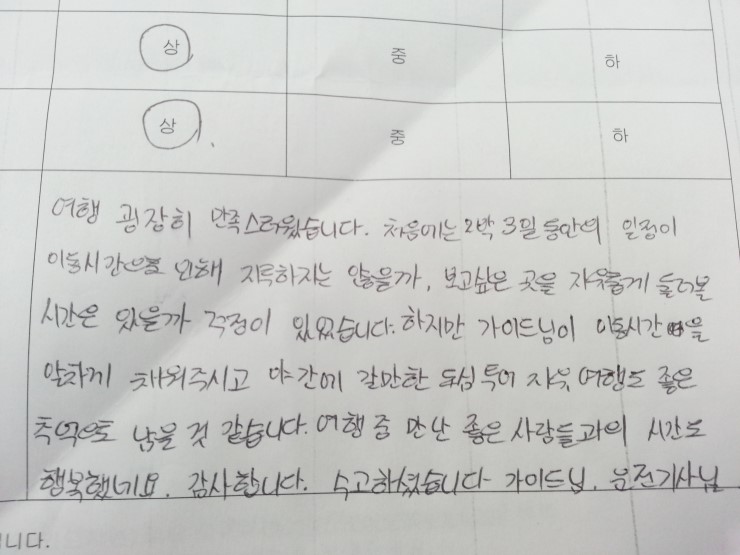 상 중 하
상 중 하
여행 굉장히 만족스러웠습니다. 처음에는 2박 3일 동안의 일정이
이동시간으로 인해 지루하지는 않을까, 보고싶은 곳을 자유롭게 둘러볼
시간은 있을까 걱정이 있었습니다. 하지만 가이드님이 이동시간을
알차게 채워주시고 야간에 갈만한 도심 투어 자유 여행도 좋은
추억으로 남을 것 같습니다. 여행 중 만난 좋은 사람들과의 시간도
행복했네요. 감사합니다. 수고하셨습니다 가이드님, 운전기사님
니다.